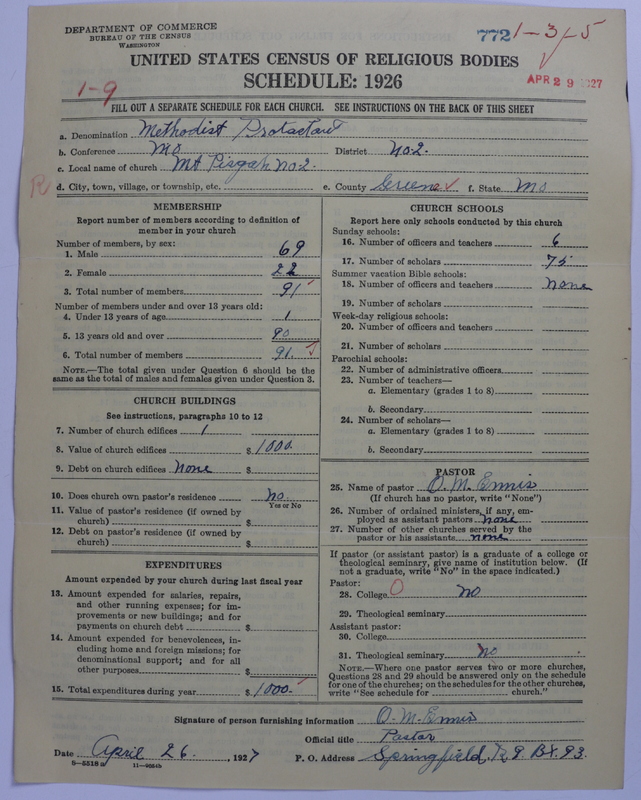 DEPARTMENT OF COMMERCE
BUREAU OF THE CENSUS
WASHINGTON
772 1-3-5
UNITED STATES CENSUS OF RELIGIOUS BODIES
SCHEDULE: 1926
APR 29 1927
1-9
FILL OUT A SEPARATE SCHEDULE FOR EACH CHURCH. SEE INSTRUCTIONS ON THE BACK OF THIS SHEET
a. Denomination Methodist Protestant
b. Conference Mo District No 2.
c. Local name of church Mt Pisgah No 2.
R d. City, town, village, or township, etc. e. County Greene f. State Mo
MEMBERSHIP
Report number of members according to definition of
member in your church
Number of members, by sex:
1. Male 69
2. Female 22
3. Total number of members 91
Number of members under and over 13 years old:
4. Under 13 years of age 1
5. 13 years old and over 90
6. Total number of members 91
NOTE.—The total given under Question 6 should be the
same as the total of males and females given under Question 3.
CHURCH BUILDINGS
See instructions, paragraphs 10 to 12
7. Number of church edifices 1
8. Value of church edifices $ 1000.
9. Debt on church edifices None $
10. Does church own pastor's residence no.
Yes or No
11. Value of pastor's residence (if owned by
church) $
12. Debt on pastor's residence (if owned by
church) $
EXPENDITURES
Amount expended by your church during last fiscal year
13. Amount expended for salaries, repairs,
and other running expenses; for im-
provements or new buildings; and for
payments on church debt $
14. Amount expended for benevolences, in-
cluding home and foreign missions; for
denominational support; and for all
other purposes $
15. Total expenditures during year $ 1000.
CHURCH SCHOOLS
Report here only schools conducted by this church
Sunday schools:
16. Number of officers and teachers 6
17. Number of scholars 75
Summer vacation Bible schools:
18. Number of officers and teachers none
19. Number of scholars
Week-day religious schools:
20. Number of officers and teachers
21. Number of scholars
Parochial schools:
22. Number of administrative officers
23. Number of teachers—
a. Elementary (grades 1 to 8)
b. Secondary
24. Number of scholars—
a. Elementary (grades 1 to 8)
b. Secondary
PASTOR
25. Name of pastor O. M. Ennis
(If church has no pastor, write "None")
26. Number of ordained ministers, if any, em-
ployed as assistant pastors none
27. Number of other churches served by the
pastor or his assistants none
If pastor (or assistant pastor) is a graduate of a college or
theological seminary, give name of institution below. (If
not a graduate, write "No" in the space indicated.)
Pastor:
28. College O no
29. Theological seminary
Assistant pastor:
30. College
31. Theological seminary no
NOTE.—Where one pastor serves two or more churches,
Questions 28 and 29 should be answered only on the schedule
for one of the churches; on the schedules for the other churches,
write "See schedule for church."
Signature of person furnishing information O. M. Ennis
Official title Pastor
Date April 26, 1927 P. O. Address Springfield, R 9. Bx. 93.